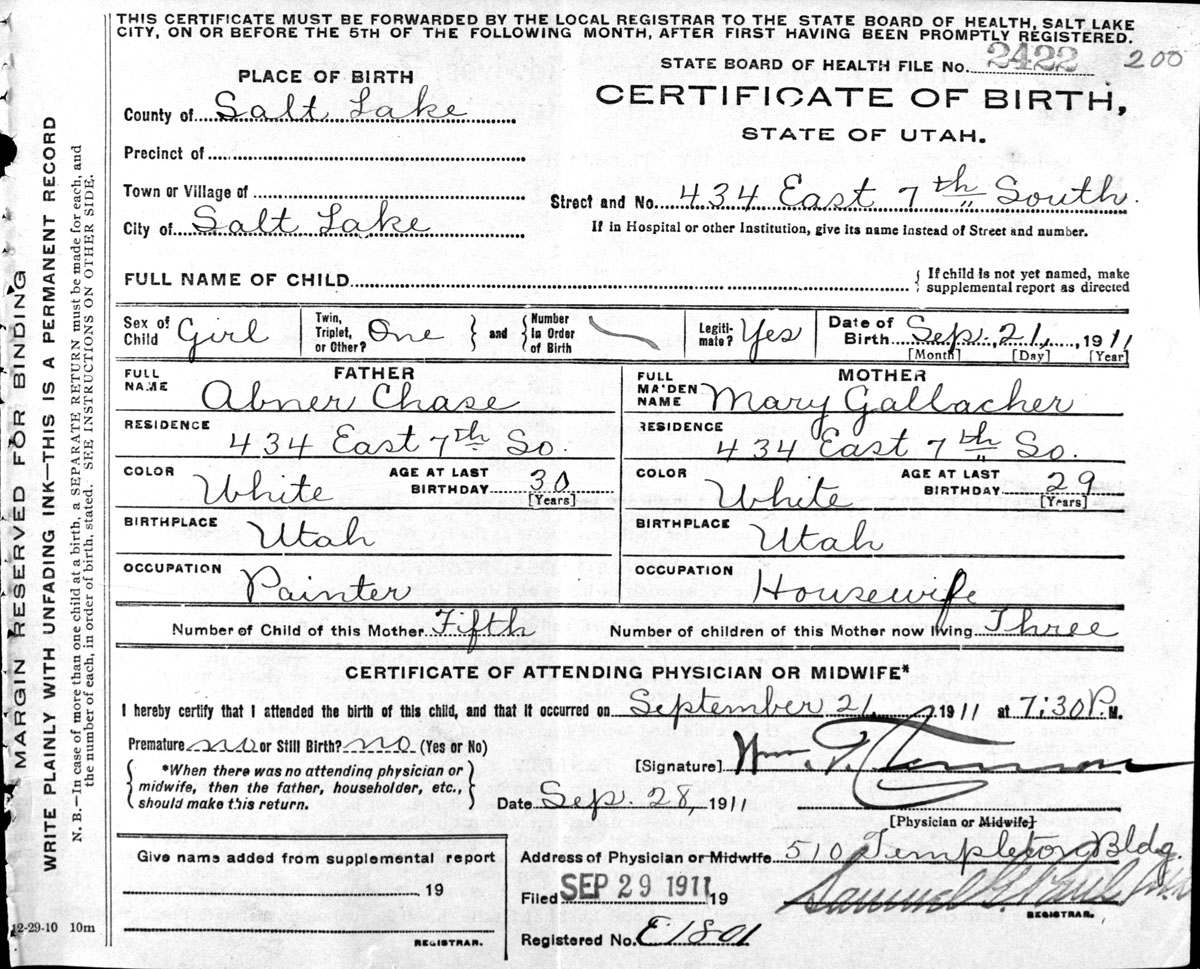 THIS CERTIFICATE MUST BE FORWARDED BY THE LOCAL REGISTRAR TO THE STATE BOARD OF HEALTH, SALT LAKE
CITY, ON OR BEFORE THE 5TH OF THE FOLLOWING MONTH, AFTER FIRST HAVING BEEN PROMPTLY REGISTERED.
STATE BOARD OF HEALTH FILE No. 2422 200
PLACE OF BIRTH
CERTIFICATE OF BIRTH,
STATE OF UTAH.
County of Salt Lake
Precinct of
Town or Village of
Street and No. 434 East 7th South.
City of Salt Lake
If in Hospital or other Institution, give its name instead of Street and number.
FULL NAME OF CHILD
If child is not yet named, make
supplemental report as directed
Sex of Child Girl Twin, Triplet, or Other? One and Number in Order of Birth Legiti-mate? Yes Date of Birth Sep. 21, 1911
[Month] [Day] [Year]
FATHER MOTHER
FULL NAME Abner Chase FULL MAIDEN NAME Mary Gallacher
RESIDENCE 434 East 7th So. RESIDENCE 434 East 7th So.
COLOR White AGE AT LAST BIRTHDAY 30 [Years] COLOR White AGE AT LAST BIRTHDAY 29 [Years]
BIRTHPLACE Utah BIRTHPLACE Utah
OCCUPATION Painter OCCUPATION Housewife
Number of Child of this Mother Fifth Number of children of this Mother now living Three
CERTIFICATE OF ATTENDING PHYSICIAN OR MIDWIFE*
I hereby certify that I attended the birth of this child, and that it occurred on September 21, 1911 at 7:30 P. M.
Premature no or Still Birth? no (Yes or No)
[Signature] Wm.
*When there was no attending physician or
midwife, then the father, householder, etc.,
should make this return.
Date Sep. 28, 1911
[Physician or Midwife]
Give name added from supplemental report
19
REGISTRAR.
Address of Physician or Midwife 510 Templeton Bldg.
Filed SEP 29 1911 19 Samuel G. Paul
REGISTRAR.
Registered No. E1801
12-29-10 10m
MARGIN RESERVED FOR BINDING
WRITE PLAINLY WITH UNFADING INK—THIS IS A PERMANENT RECORD
N. B.—In case of more than one child at a birth, a SEPARATE RETURN must be made for each, and
the number of each, in order of birth, stated. SEE INSTRUCTIONS ON OTHER SIDE.